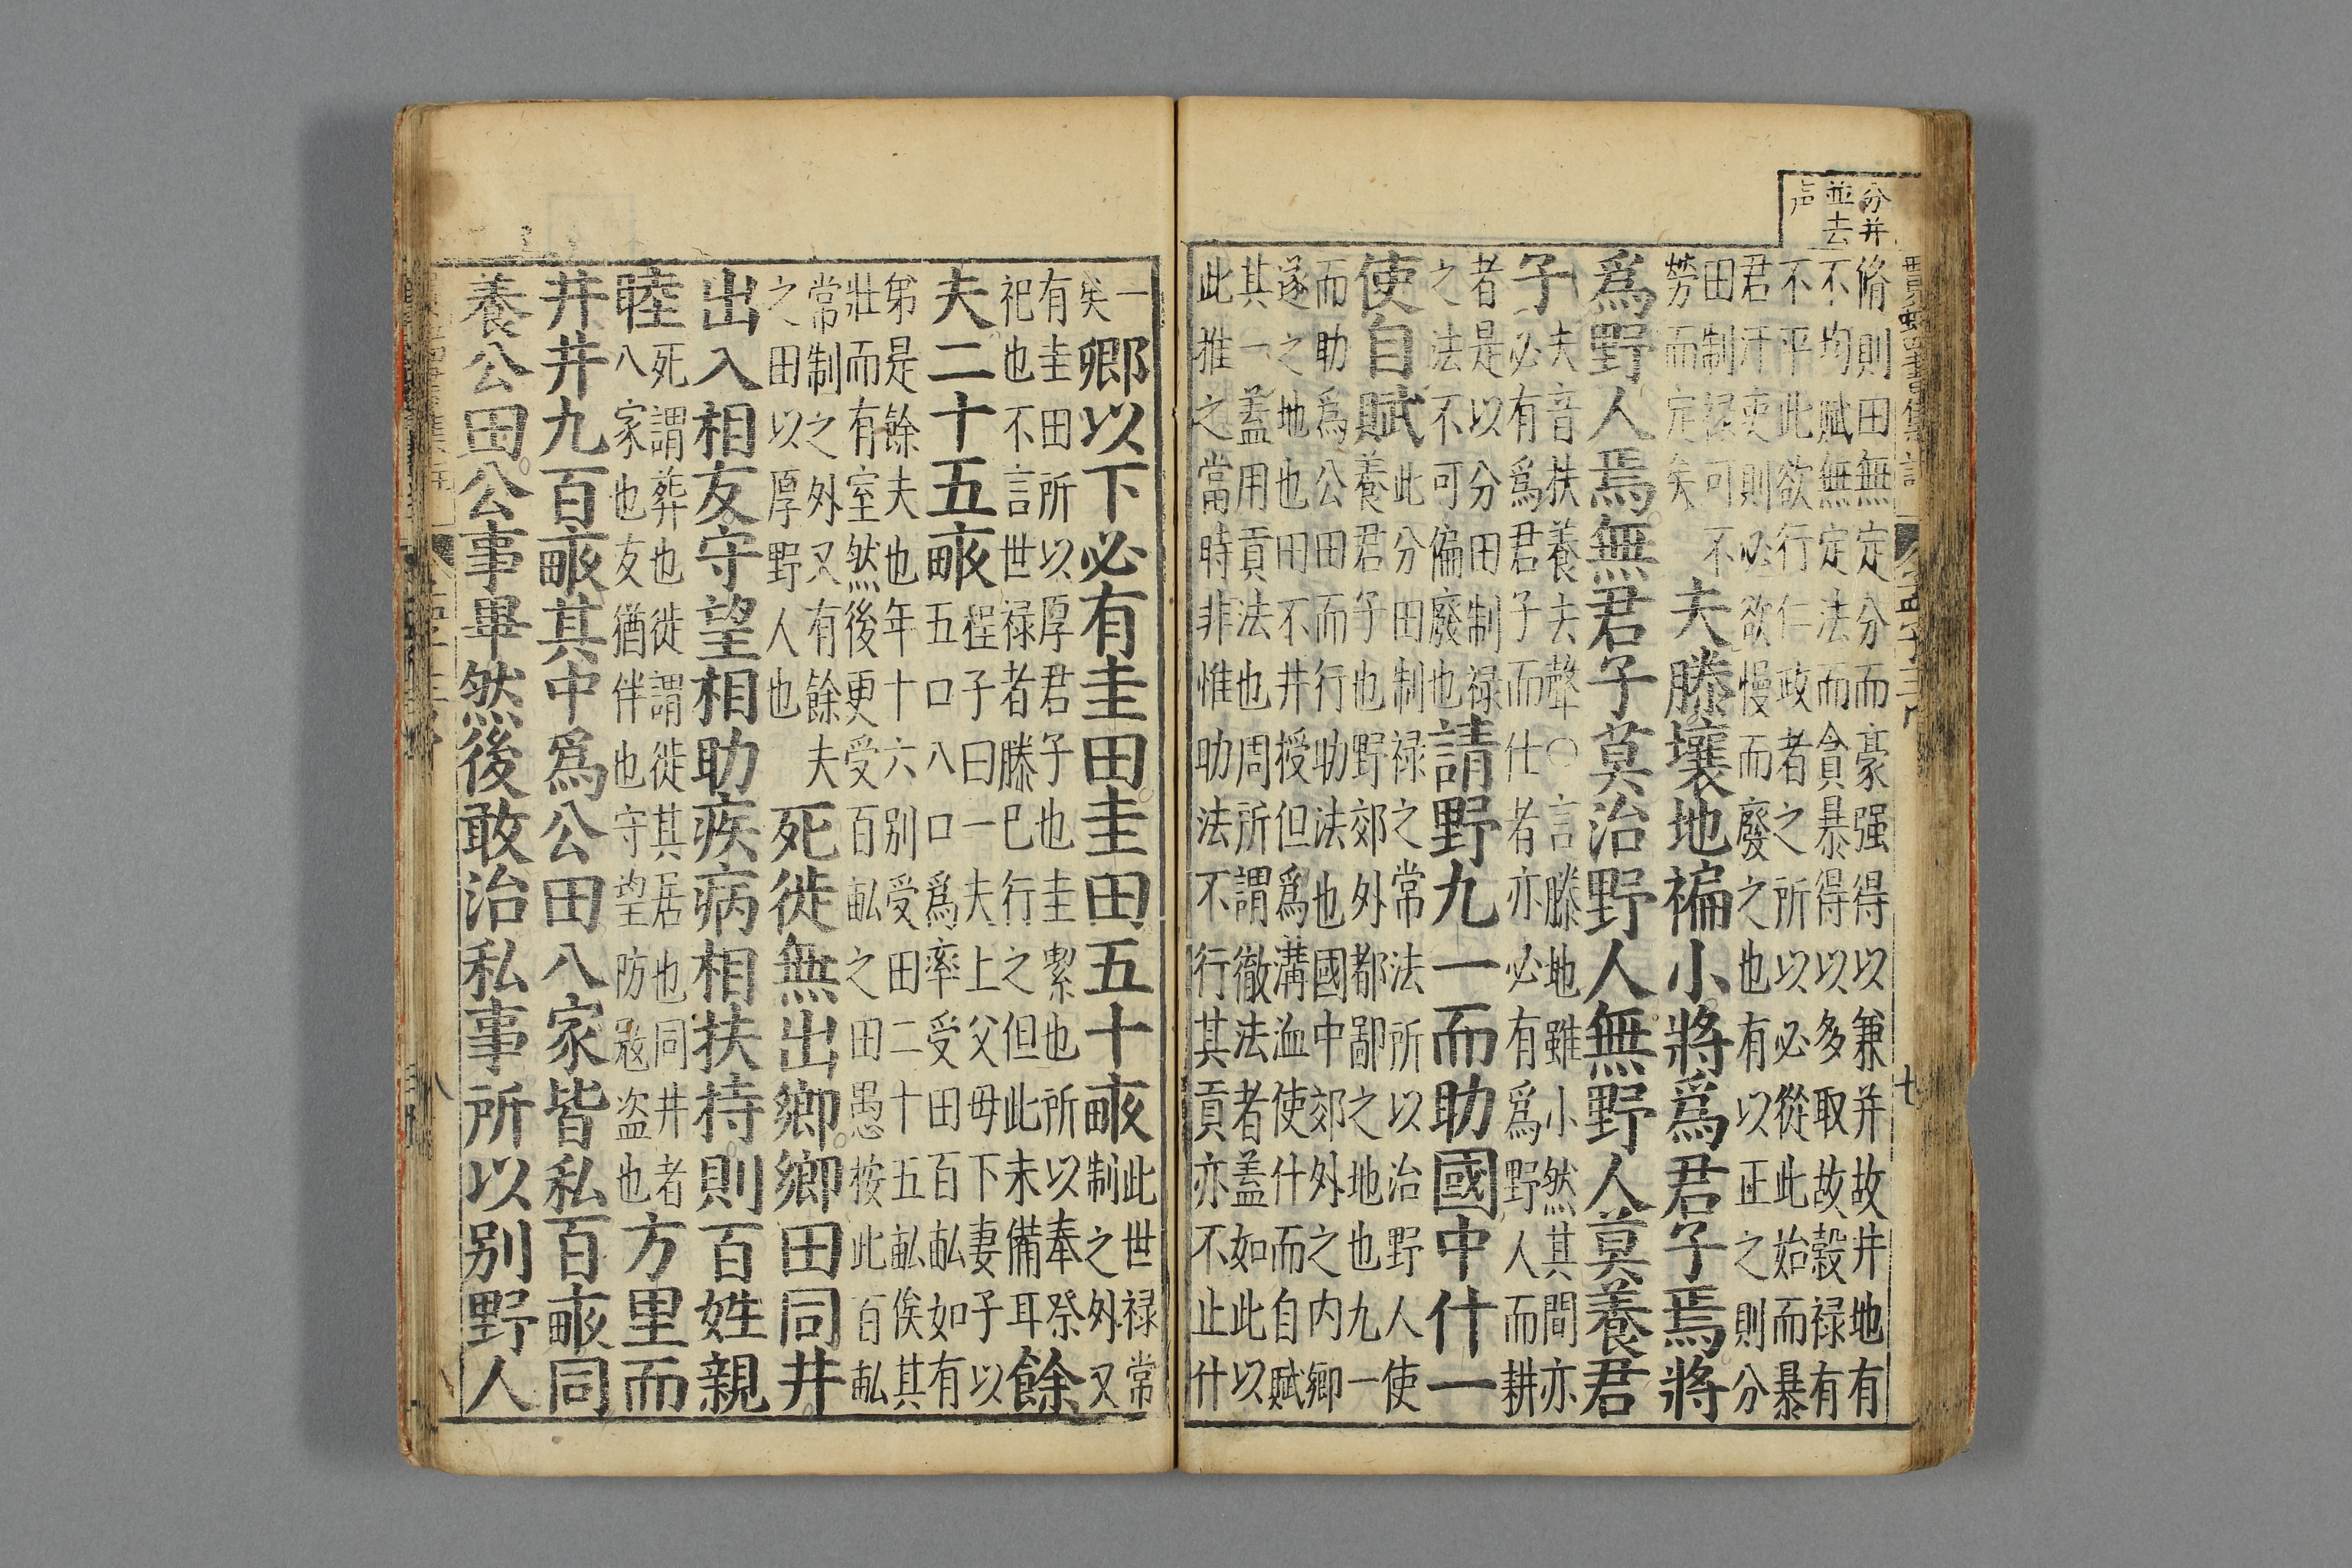 分并
並去
声
脩則田無定分而豪强得以兼并故井地有
不均賦無定法而貪暴得以多取故穀禄有
不平此欲行仁政者之所以必從此始而暴
君汙吏則必欲慢而廢之也有以正之則分
田制禄可不
勞而定矣
夫滕壤地褊小將爲君子焉將
爲野人焉無君子莫治野人無野人莫養君
子
夫音扶養夫聲○言滕地雖小然其間亦
必有爲君子而仕者亦必有爲野人而耕
者是以分田制禄
之法不可偏廢也
請野九一而助國中什一
使自賦
此分田制禄之常法所以治野人使
養君子也野郊外都鄙之地也九一
而助爲公田而行助法也國中郊外之内鄉
遂之地也田不井授但爲溝洫使什而自賦
其一蓋用貢法也周所謂徹法者蓋如此以
此推之當時非惟助法不行其貢亦不止什
一
矣
卿以下必有圭田圭田五十畝
此世禄常
制之外又
有圭田所以厚君子也圭絜也所以奉祭
祀也不言世禄者滕巳行之但此未備耳
餘
夫二十五畝
程子曰一夫上父母下妻子以
五口八口爲率受田百畆如有
弟是餘夫也年十六別受田二十五畆俟其
壯而有室然後更受百畆之田愚按此百畆
常制之外又有餘夫
之田以厚野人也
死徙無出鄉鄉田同井
出入相友守望相助疾病相扶持則百姓親
睦
死謂葬也徙謂徙其居也同井者
八家也友猶伴也守望防寇盗也
方里而
井井九百畝其中爲公田八家皆私百畝同
養公田公事畢然後敢治私事所以別野人